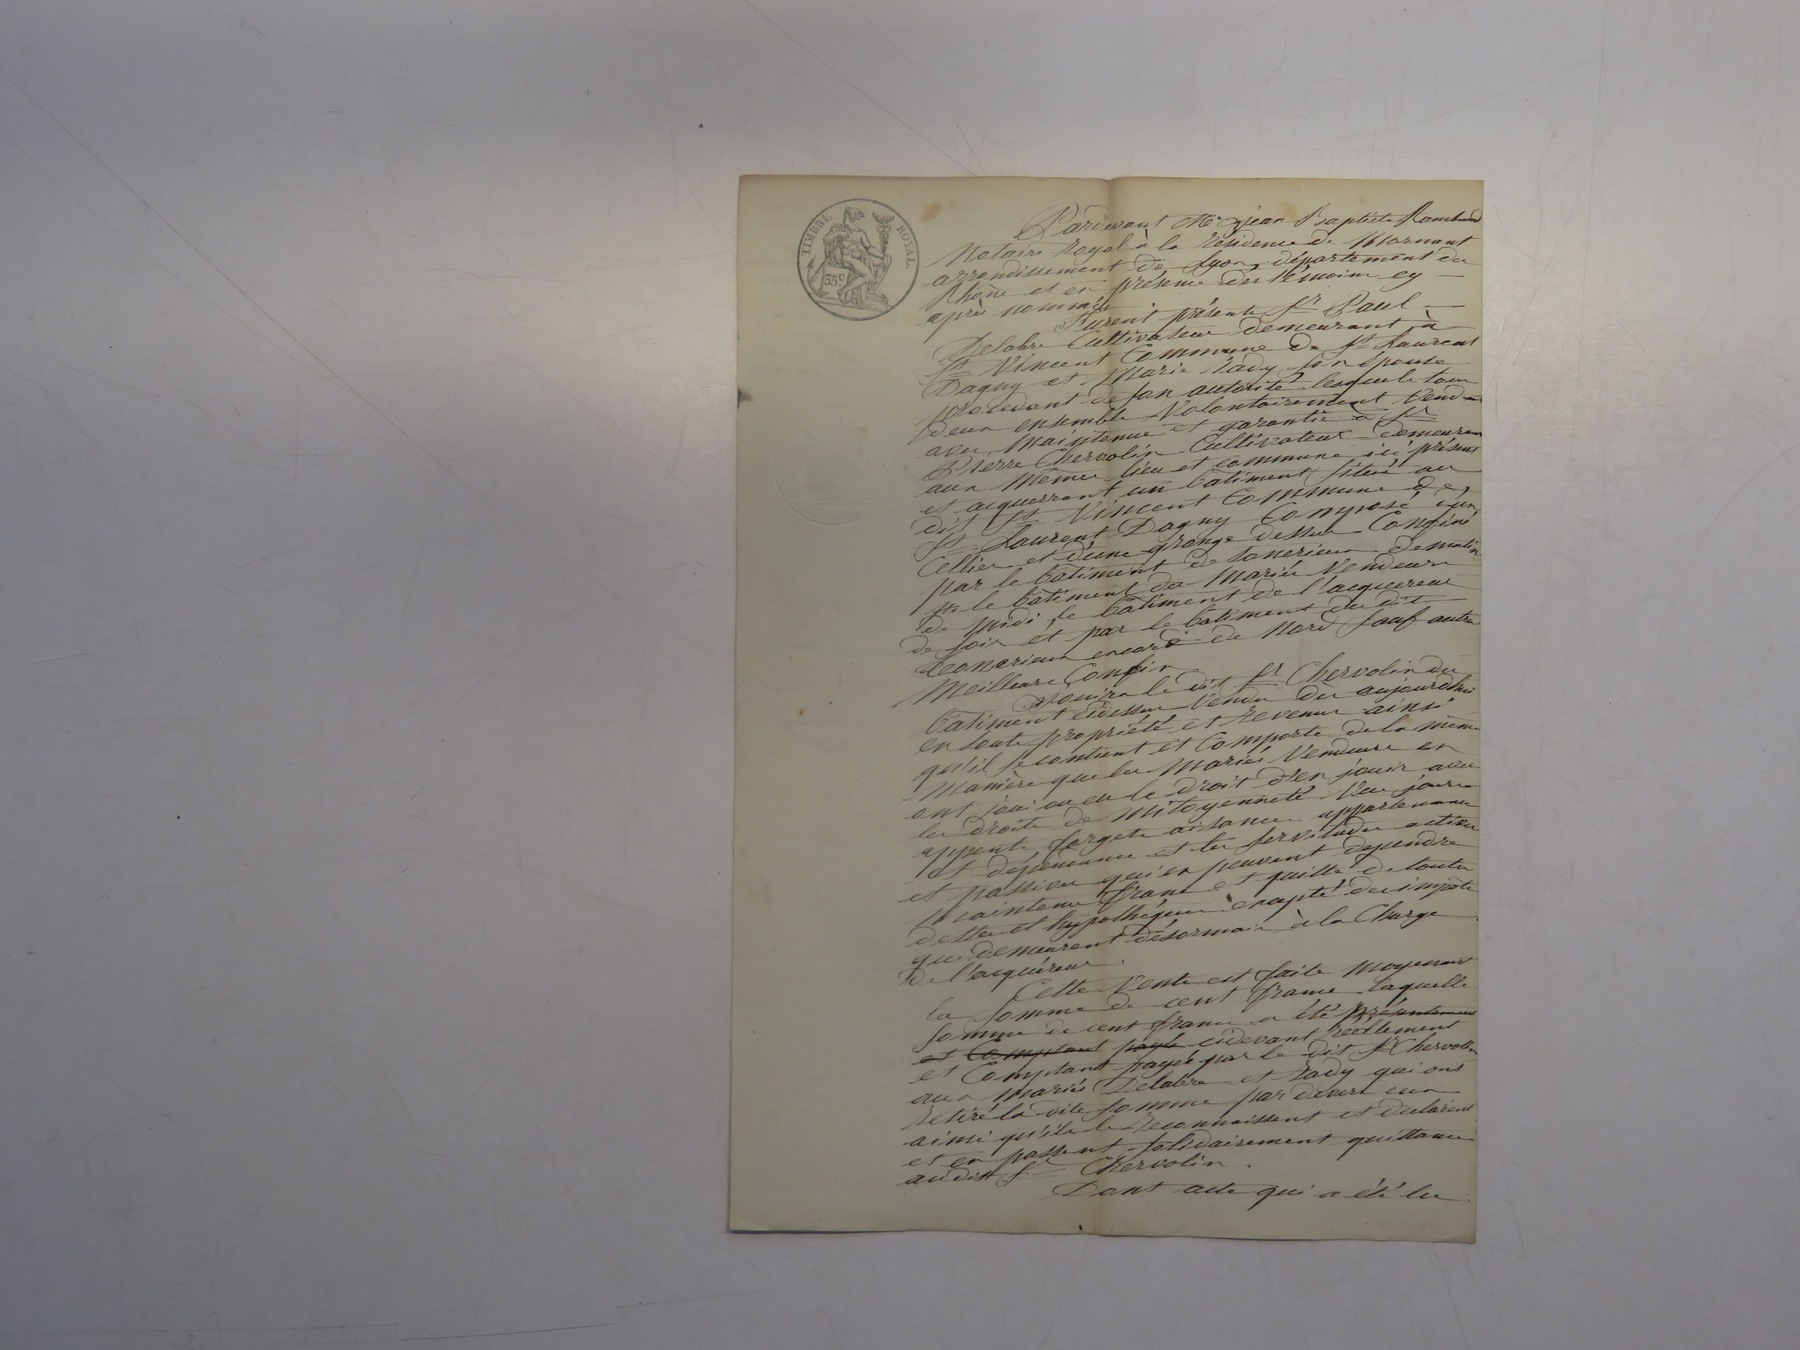 TIMBRE ROYAL.
35 c
Pardevant Me jean Baptiste Rambaud
Notaire Royal à la résidence de Mornant
arrondissement de Lyon département du
Rhône et en présence des témoins cy
après nommés
Furent présents Sr Paul
Delabre Cultivateur demeurant à
St Vincent Commune de St Laurent
Dagny et Marie son épouse
procedant de son autorité lesquels tous
deux ensemble Volontairement Vendent
avec maintenue et garantie à Sr
Pierre Chervolin Cultivateur demeurant
aux mêmes lieu et commune ici présent
et acquerrant un batiment situé au
dit St Vincent Commune de
St Laurent Dagny Composé d'un
Cellier et d'une grange dessus Confiné
par le batiment de de matin
par le batiment des mariés Vendeurs
de midi, le batiment de l'acquereur
de soir et par le batiment du dit
encore de Nord sauf autres
Meilleurs Confins
Jouira le dit Sr Chervolin du
batiment cidessus Vendu dès aujourdhui
en toute propriété et revenus ainsi
qu'il se contient et Comporte de la même
Manière que les Mariés Vendeurs en
ont joui ou eu le droit d'en jouir avec
les droits de mitoyenneté Vues jours
appents largets aisances appartenances
et dépendances et les servitudes actives
et passives qui en peuvent dépendre
Maintenu franc et quitte de toutes
dettes et hypothéques à excepté des impots
qui demeurent désormais à la Charge
de l'acquéreur.
Cette Vente est faite moyennant
la somme de cent francs laquelle
somme de cent francs a été présentement
et Comptant payée cidevant réellement
et Comptant payée par le dit Sr Chervolin
aux mariés Delabre et qui ont
retiré la dite somme pardevers eux
ainsi qu'ils le reconnaissent et déclarent
et en passent solidairement quittance
audit Sr Chervolin.
Dont acte qui a été lu